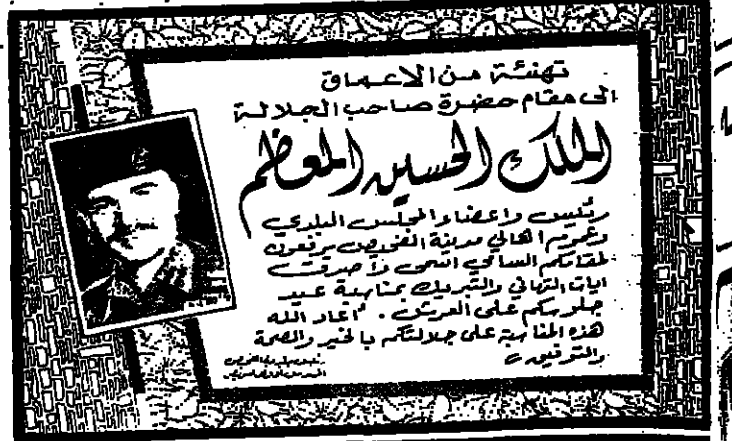 تهنئة من الاعماق
الى مقام حضرة صاحب الجلالة
الملك الحسين المعظم
رئيس واعضاء المجلس البلدي
وعموم اهالي مدينة الفحيص يرفعون
لمقامكم السامي اسمى واصدق
ايات التهاني والتبريك بمناسبة عيد
جلوسكم على العرش . اعاد الله
هذه المناسبة على جلالتكم بالخير والصحة
والتوفيق